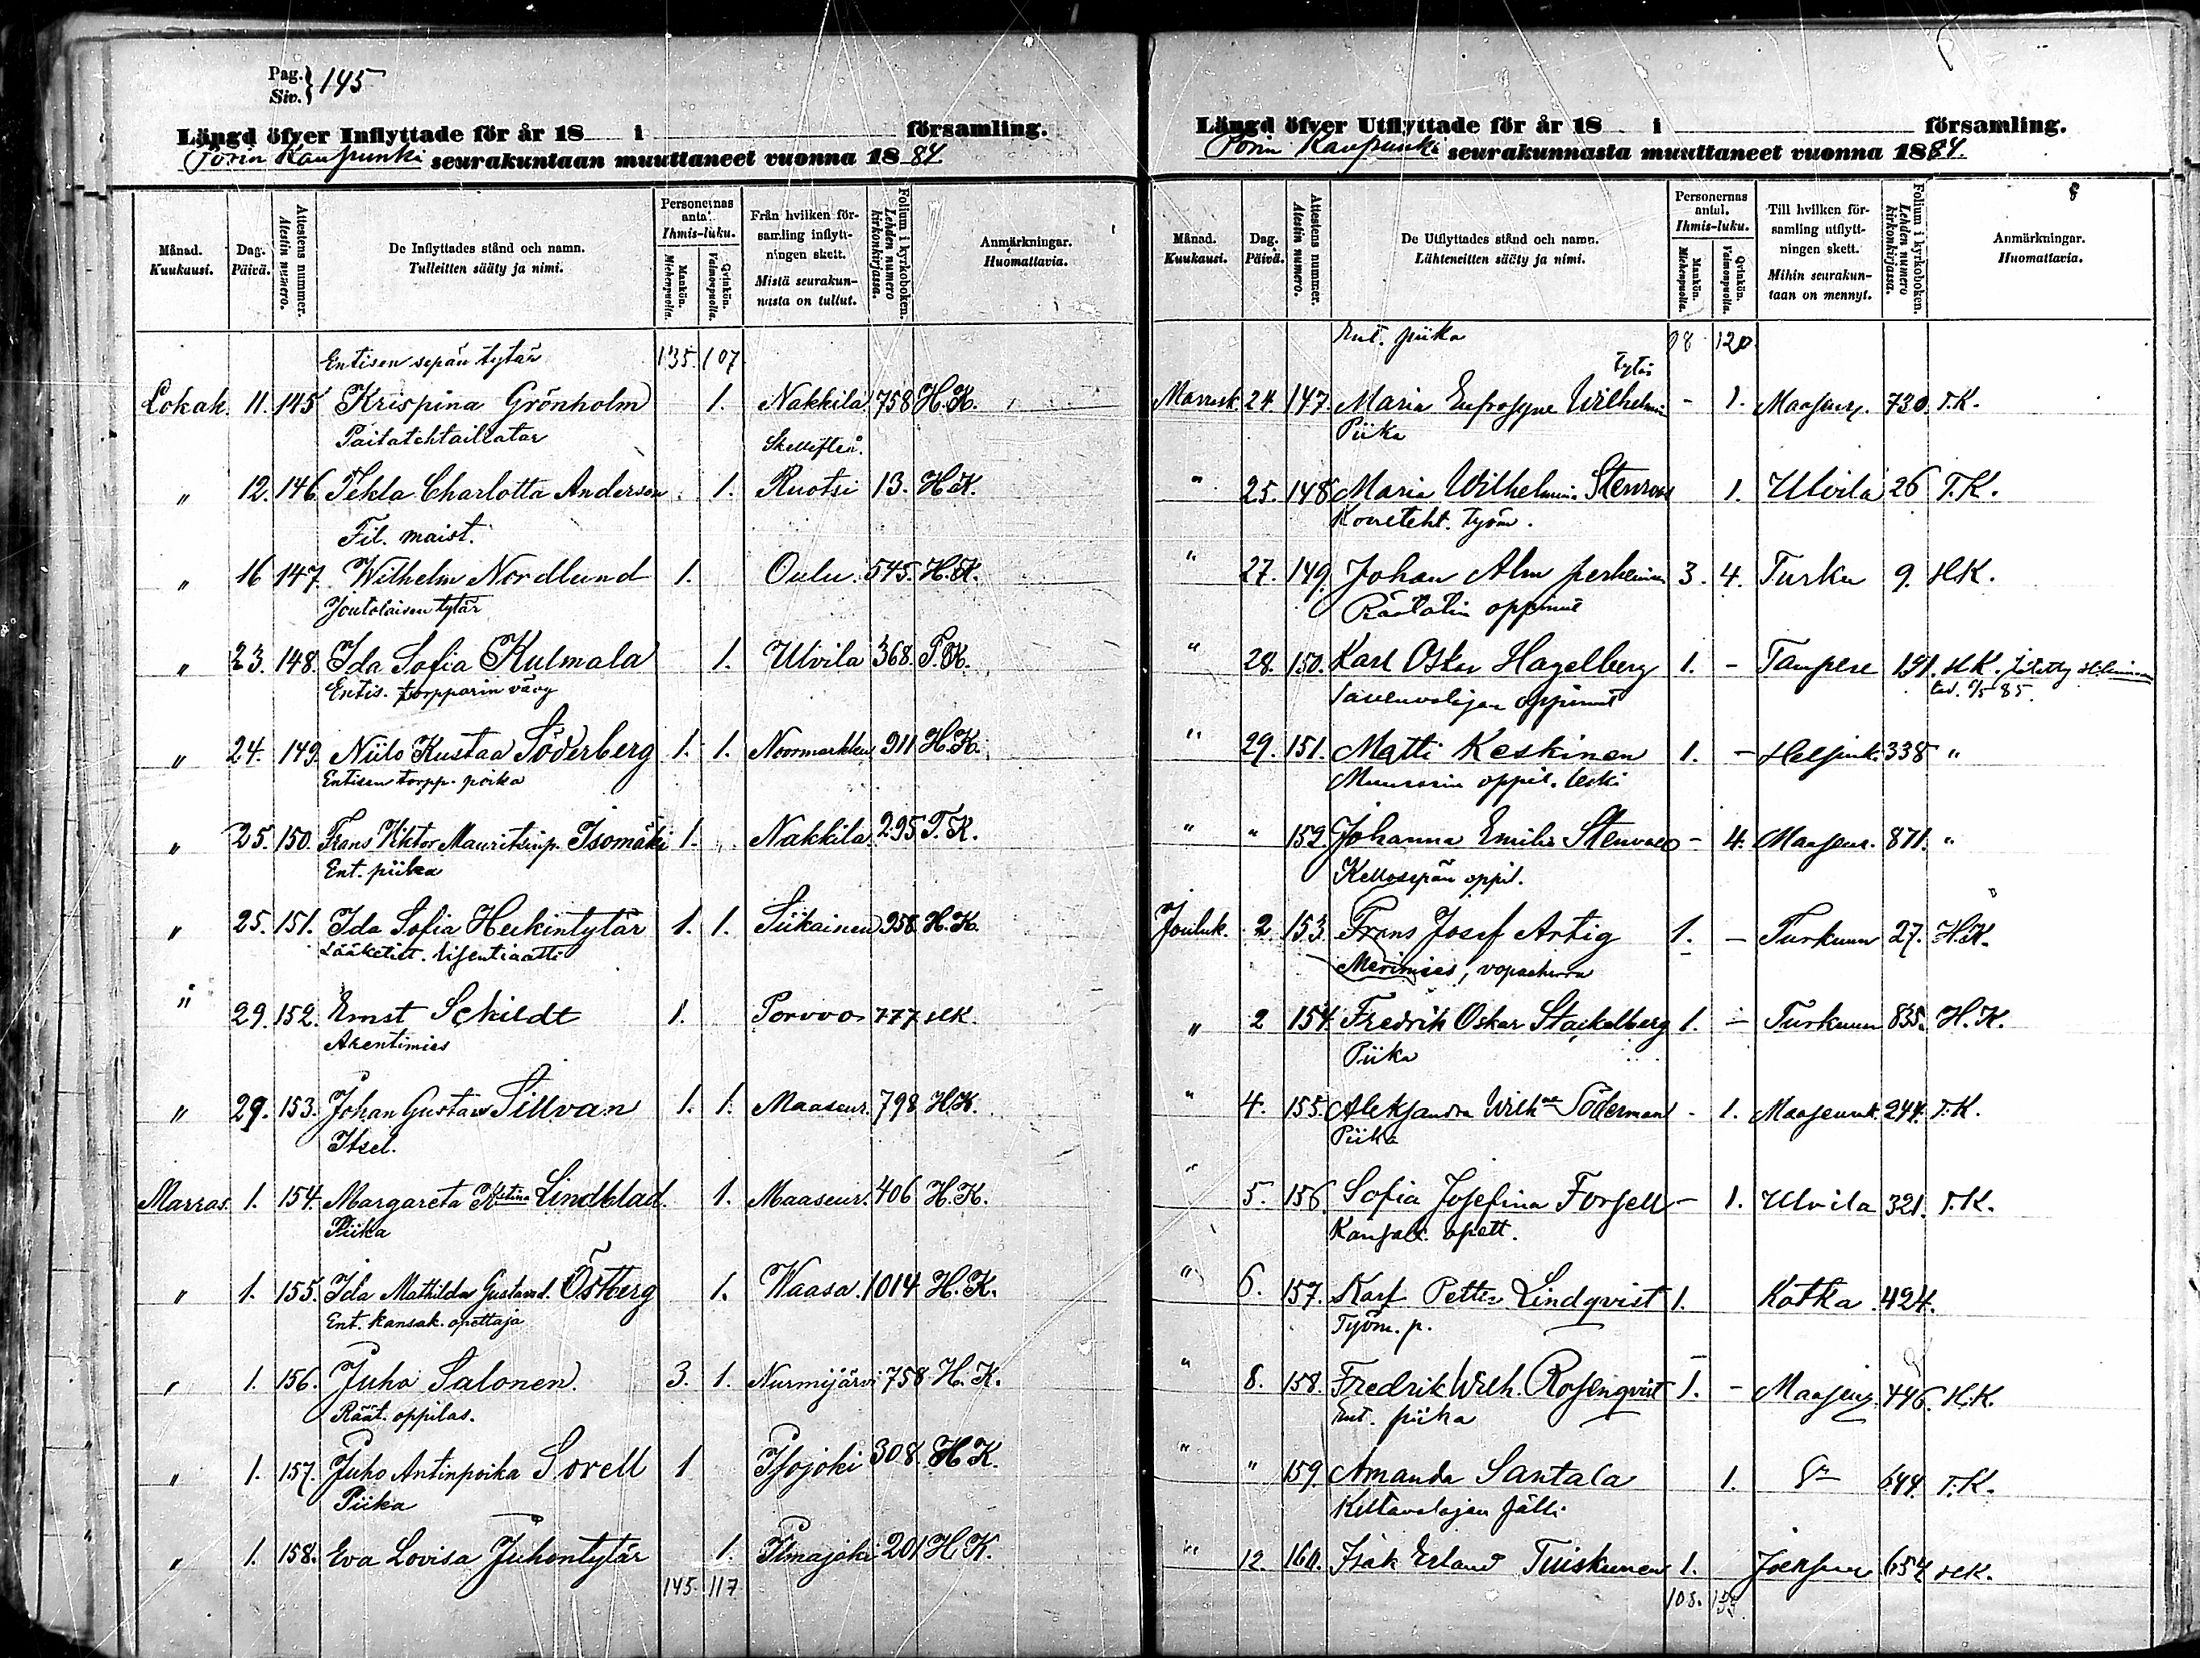 Pag. Siv. } 145
Längd öfver Inflyttade för år 18 i församling.
Porin Kaupunki seurakuntaan muuttaneet vuonna 1884
Månad. Kuukausi.
Dag. Päivä.
Attestens nummer. Atestin numero.
De Inflyttades stånd och namn. Tulleitten sääty ja nimi.
Personernas antal. Ihmis-luku.
Mankön. Miehenpuolia.
Qvinkön. Vaimonpuolia.
Från hvilken församling inflyttningen skett. Mistä seurakunnasta on tullut.
Folium i kyrkoboken. Lehden numero kirkonkirjassa.
Anmärkningar. Huomattavia.
Entisen sepän tytär 135. 107
Lokak. 11. 145 Krispina Grönholm 1. Nakkila 758 H.K.
Paitatehtailatar Skellefteå.
" 12. 146. Tekla Charlotta Anderson 1. Ruotsi 13. H.K.
Fil. maist.
" 16 147. Wilhelm Nordlund 1. Oulu. 545. H.K.
Joutolaisen tytär
" 23. 148. Ida Sofia Kulmala 1. Ulvila 368. T.K.
Entis. torpparin vävy
" 24. 149. Niilo Kustaa Söderberg 1. 1. Noormarkku 911 H.K.
Entisen torpp. poika
" 25. 150. Frans Viktor Mauritsinp. Isomäki 1. Nakkila 295. T.K.
Ent. piika
" 25. 151. Ida Sofia Heikintytär 1. 1. Siikainen 958. H.K.
Lääketiet. lisentiaatti
" 29. 152. Ernst Schildt 1. Porvoo 777 H.K.
Arentimies
" 29. 153. Johan Gustav Sillvan 1. 1. Maaseur. 798 H.K.
Itsel.
Marras. 1. 154. Margareta Kstina Lindblad. 1. Maaseur. 406 H.K.
Piika
" 1. 155. Ida Mathilda Gustavsd. Östberg 1. Waasa. 1014 H.K.
Ent. kansak. opettaja
" 1. 156. Juho Salonen. 3. 1. Nurmijärvi 758 H.K.
Räät. oppilas.
" 1. 157. Juho Antinpoika Sorell 1 Isojoki 308. H.K.
Piika
" 1. 158. Eva Lovisa Juhontytär 1. Ilmajoki 201 H.K.
145. 117
Längd öfver Utflyttade för år 18 i församling.
Porin Kaupunki seurakunnasta muuttaneet vuonna 1884.
Månad. Kuukausi.
Dag. Päivä.
Attestens nummer. Atestin numero.
De Utflyttades stånd och namn. Lähteneitten sääty ja nimi.
Personernas antal. Ihmis-luku.
Mankön. Miehenpuolia.
Qvinkön. Vaimonpuolia.
Till hvilken församling utflyttningen skett. Mihin seurakuntaan on mennyt.
Folium i kyrkoboken. Lehden numero kirkonkirjassa.
Anmärkningar. Huomattavia.
Ent. piika 98 120
tytär
Marrask. 24. 147. Maria Eufrosyne Wilhelmin - 1. Maaseur. 730. T.K.
Piika
" 25. 148 Maria Wilhelmina Stenroos 1. Ulvila 26 T.K.
Koneteht. työm.
" 27. 149. Johan Alm perheineen 3. 4. Turku 9. H.K.
Räätälin oppinut
" 28. 150. Karl Oskar Hagelberg 1. - Tampere 191. H.K.
85.
Savenvalajan oppinut
" 29. 151. Matti Keskinen 1. - Helsinki 338 "
Muurarin oppil. leski
" " 152. Johanna Emilia Stenvall - 4. Maaseur. 871. "
Kellosepän oppil.
Jouluk. 2. 153. Frans Josef Artig 1. - Turkuun 27. H.K.
Merimies, vapaaherra
" 2 154 Fredrik Oskar Stackelberg 1. - Turkuun 835. H.K.
Piika
" 4. 155. Aleksandra Wilhna Söderman - 1. Maaseurak. 244. T.K.
Piika
" 5. 156. Sofia Josefina Forsell - 1. Ulvila 321. T.K.
Kansak. opett.
" 6. 157. Karl Petter Lindqvist 1. Kotka 424.
Työm. p.
" 8. 158. Fredrik Wilh. Rosenqvist 1. - Maaseur. 446. H.K.
Ent. piika
" " 159. Amanda Santala 1. 644. T.K.
Keltavalajan sälli
" 12. 160. Isak Erland Tuiskunen 1. Joensuu 654 H.K.
108.